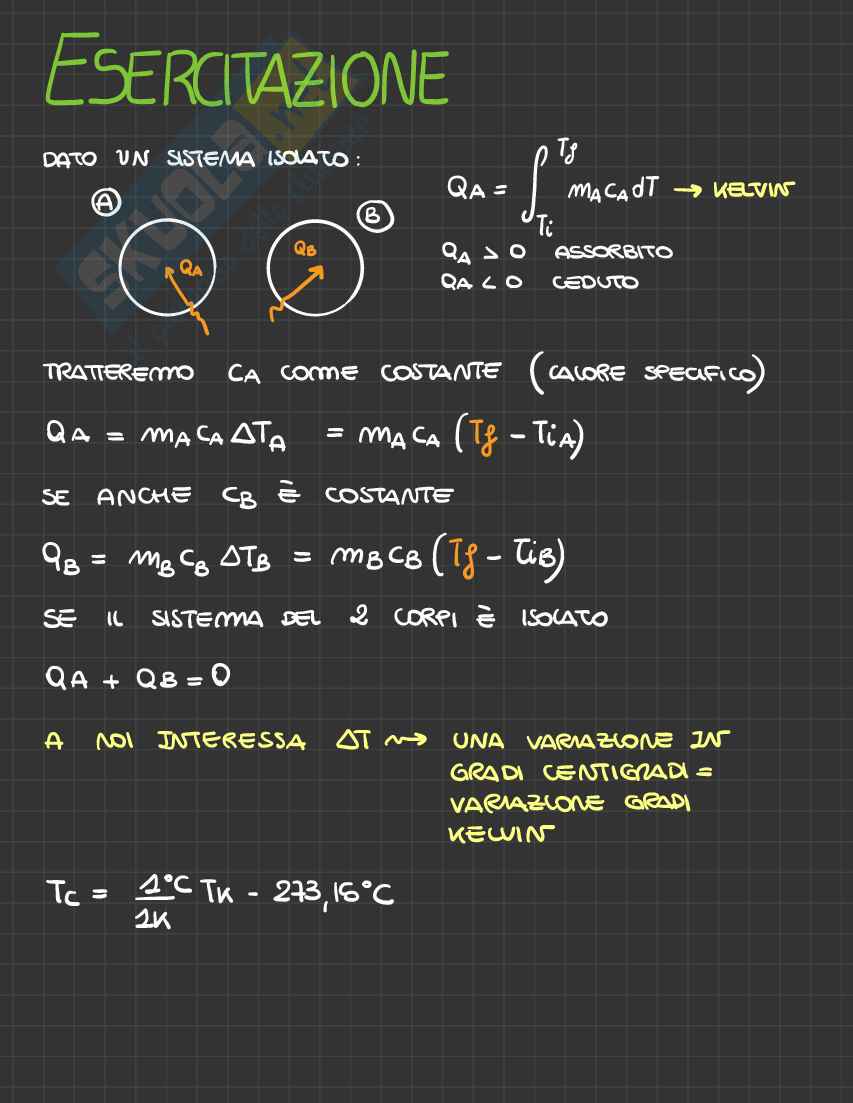 ESERCITAZIONE
DATO UN SISTEMA ISOLATO:
A
B
QA
QB
QA = ∫ Tf Ti mA cA dT → KELVIN
QA > 0 ASSORBITO
QA < 0 CEDUTO
TRATTEREMO CA COME COSTANTE (CALORE SPECIFICO)
QA = mA cA ΔTA = mA cA (Tf - TiA)
SE ANCHE CB È COSTANTE
QB = mB cB ΔTB = mB cB (Tf - TiB)
SE IL SISTEMA DEL 2 CORPI È ISOLATO
QA + QB = 0
A NOI INTERESSA ΔT ⇝ UNA VARIAZIONE IN
GRADI CENTIGRADI =
VARIAZIONE GRADI
KELVIN
TC = 1°C/1K TK - 273,16°C
SKUOLA.net